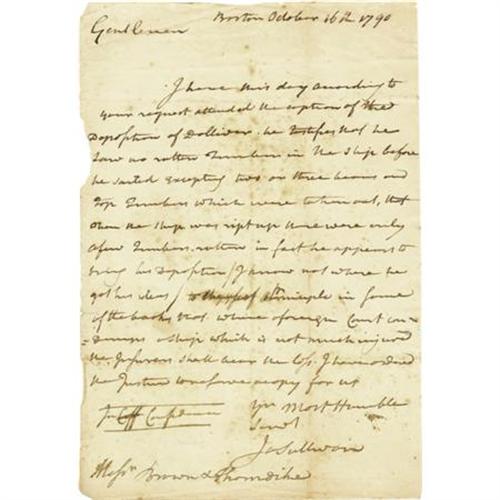 Boston October 16th 1790
Gentlemen
I have this day according to
your request attended the caption of the
Deposition of Dolliver. he testifies that he
saw no rotten Timbers in the Ship before
he sailed excepting two or three beams and
Top Timbers which were taken out, that
when the Ship was ript up there were only
a few Timbers rotten in fact he appears to
bring his Deposition / I know not where he
got his ideas / to the principle in some
of the books that where a foreign Court con
demns a Ship which is not much injured
the Insurers shall bear the loss. I have ordered
the Justice to reserve a copy for us
Yr Most Humble
Servt
Ja Sullivan
Messrs Brown & Thorndike